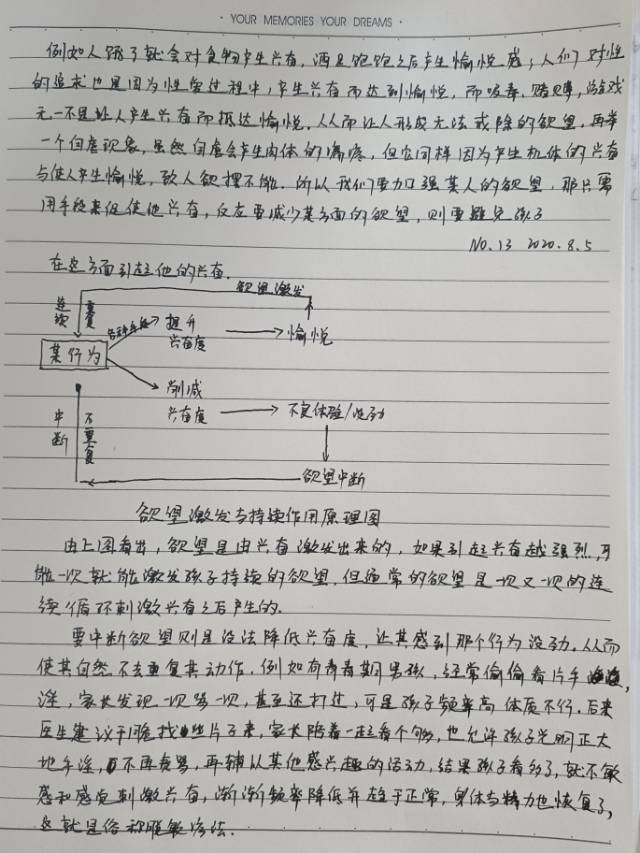 · YOUR MEMORIES YOUR DREAMS ·
例如人饿了就会对食物产生兴奋,酒足饱饱之后产生愉悦感;人们对性
的追求也是因为性爱过程中,产生兴奋而达到愉悦,而吸毒、赌博,游戏
无一不是让人产生兴奋而抵达愉悦。从而让人形成无法戒除的欲望。再举
一个自虐现象,虽然自虐会产生肉体的痛疼,但它同样因为产生机体的兴奋
与使人产生愉悦,致人欲摆不能。所以我们要加强某人的欲望,那只需
用手段来促使他兴奋,反左要减少某方面的欲望,则要避免孩子
NO.13 2020.8.5
在这方面引起他的兴奋.
欲望激发
连续 重复
各种手段 提升兴奋度
愉悦
某行为
削减兴奋度
不良体验/没劲
中断 不重复
欲望中断
欲望激发与持续作用原理图
由上图看出,欲望是由兴奋激发出来的,如果引起兴奋越强烈,可
能一次就能激发孩子持续的欲望,但通常的欲望是一次又一次的连
续循环刺激兴奋之后产生的.
要中断欲望则是设法降低兴奋度,让其感到那个行为没劲.从而
使其自然不去重复其动作。例如有青春期男孩,经常偷偷看片手
淫,家长发现一次骂一次,甚至还打过,可是孩子频率高体质不行.后来
医生建议干脆找些片子来,家长陪着一起看个够,也允许孩子光明正大
地手淫,不再责骂,再辅以其他感兴趣的活动,结果孩子看多了,就不敏
感和感觉刺激兴奋,渐渐频率降低并趋于正常,身体与精力也恢复了,
这就是俗称脱敏疗法.